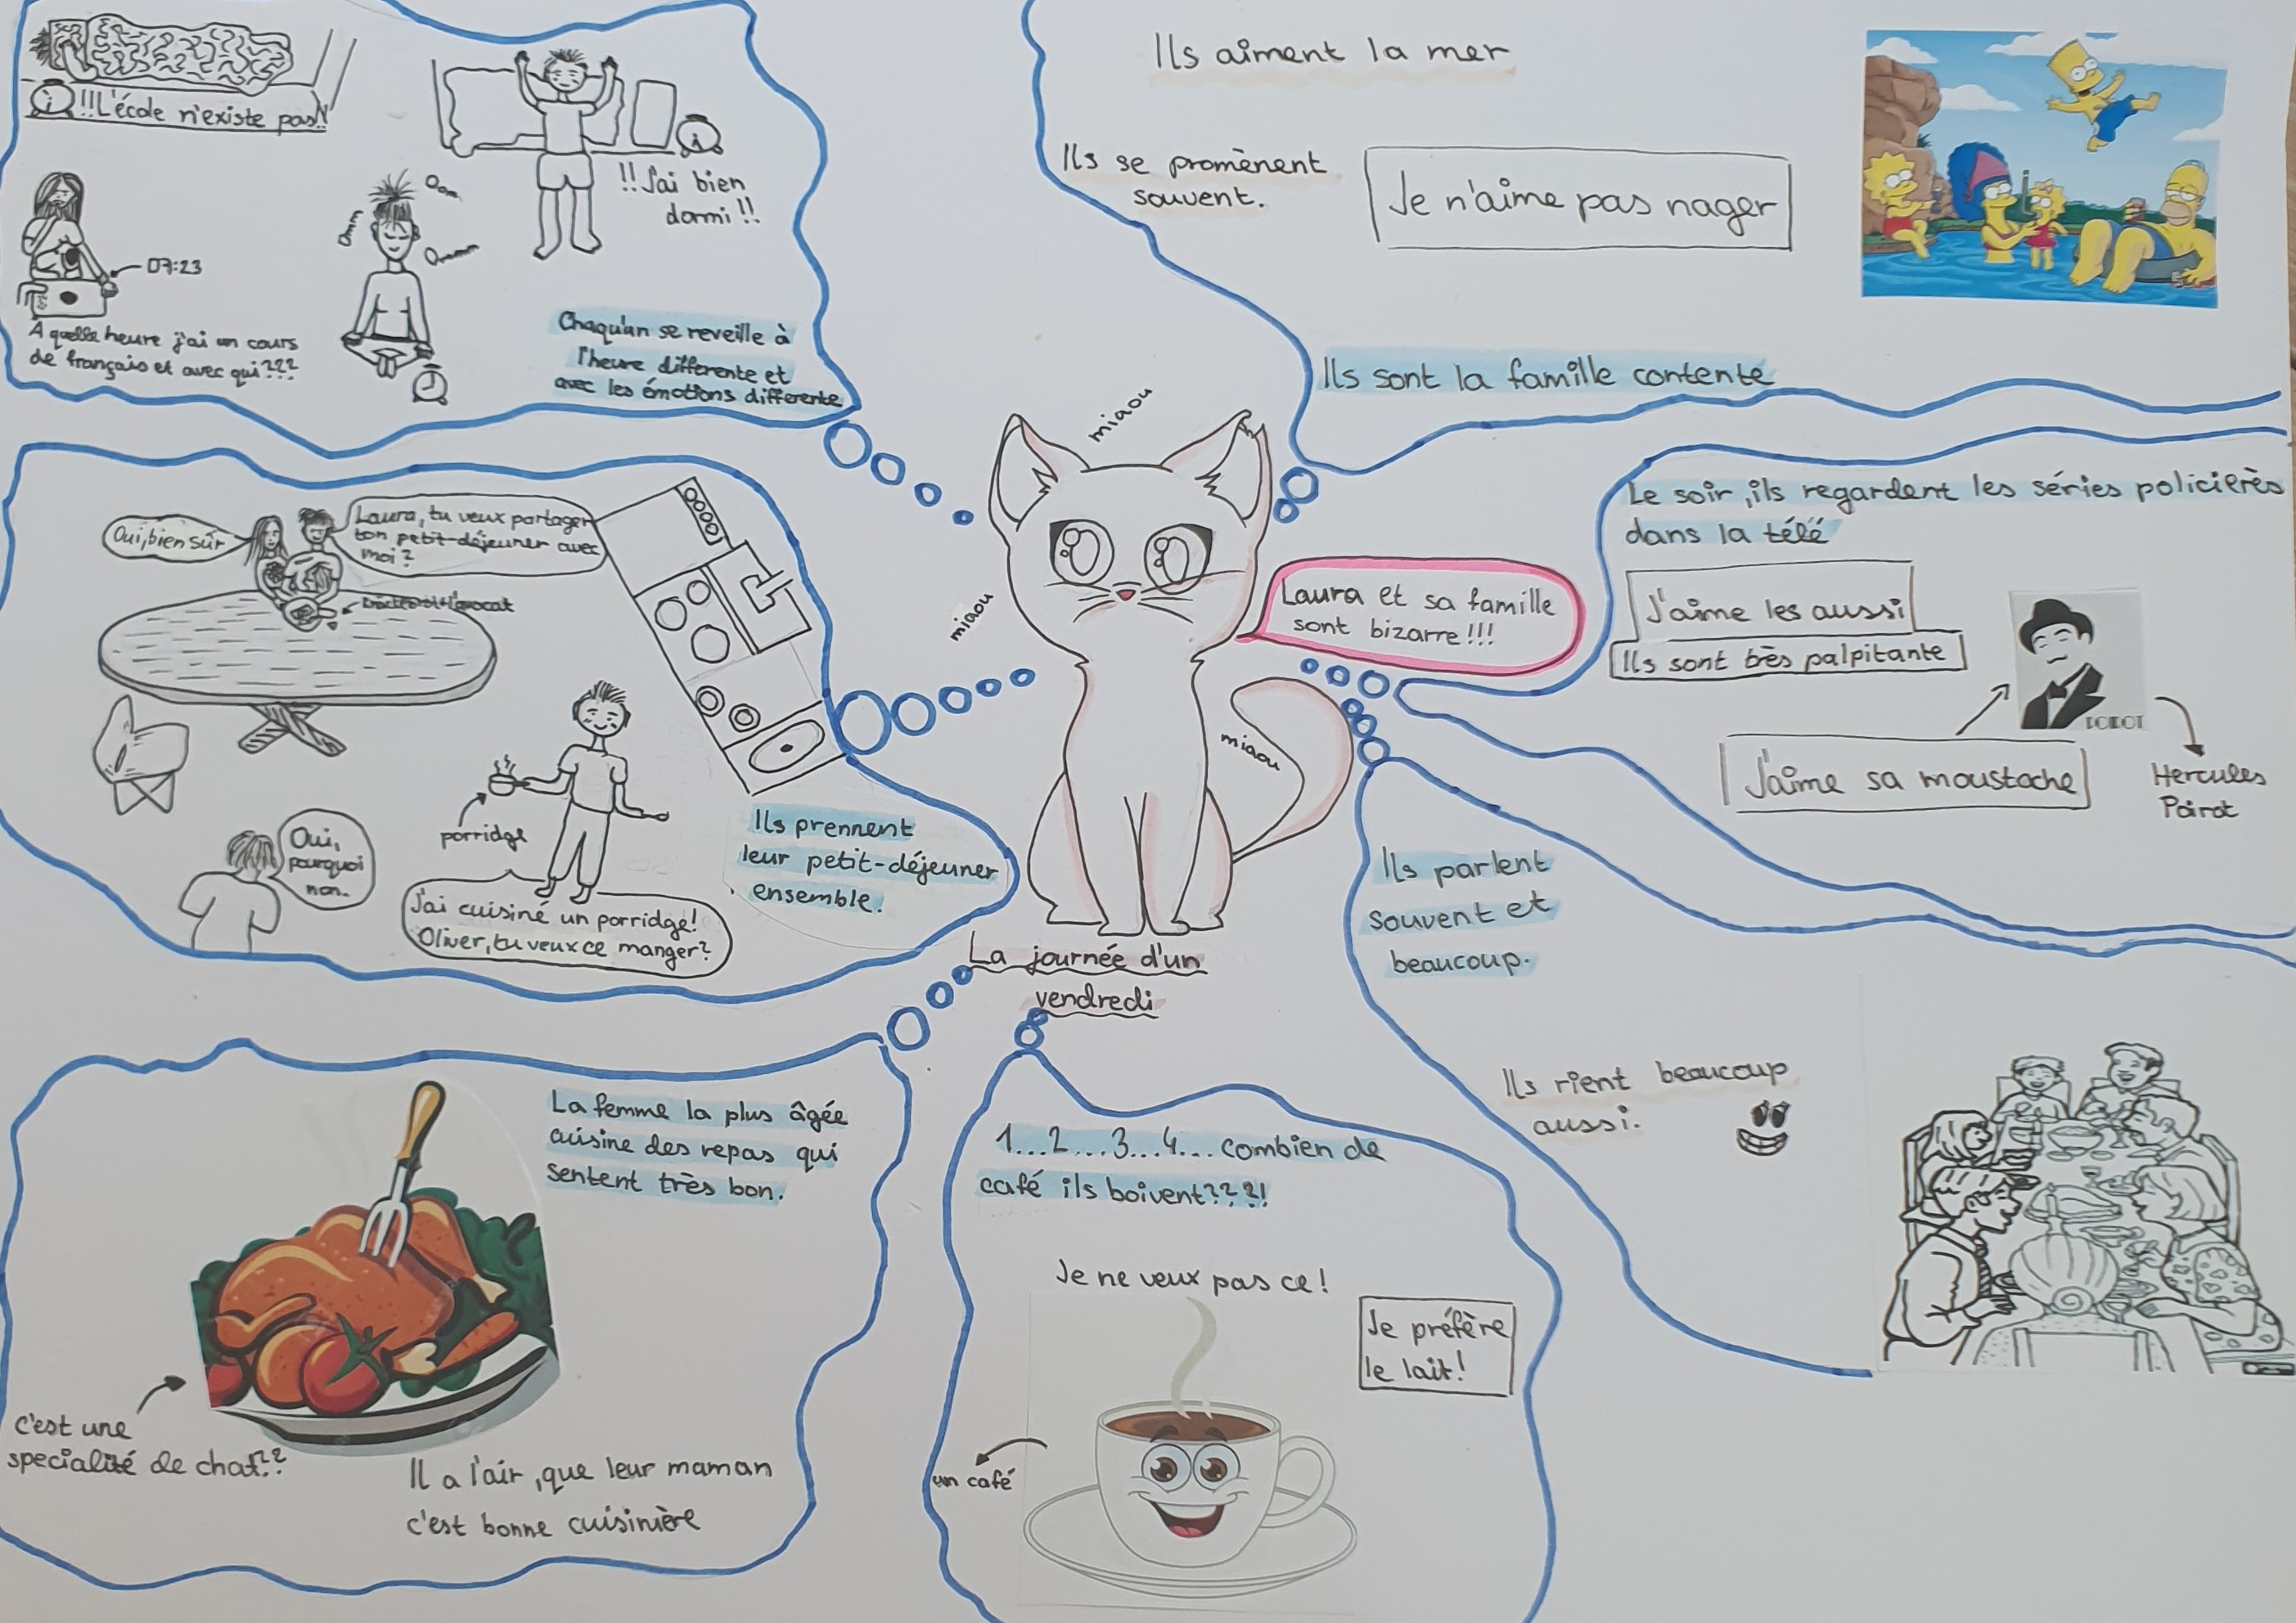 !!L'école n'existe pas!!
!!J'ai bien
dormi!!
07:23
A quelle heure j'ai un cours
de français et avec qui???
Chaqu'un se reveille à
l'heure differente et
avec les émotions differente
Ils aiment la mer
Ils se promènent
souvent.
Je n'aime pas nager
Ils sont la famille contente
miaou
miaou
miaou
Laura et sa famille
sont bizarre!!!
Oui, bien sûr
Laura, tu veux partager
ton petit-déjeuner avec
moi?
porridge
Oui,
pourquoi
non.
J'ai cuisiné un porridge!
Oliver, tu veux ce manger?
Ils prennent
leur petit-déjeuner
ensemble.
Le soir, ils regardent les séries policierès
dans la télé
J'aime les aussi
Ils sont très palpitante
J'aime sa moustache
Hercules
Poirot
POIROT
La journée d'un
vendredi
Ils parlent
souvent et
beaucoup.
Ils rient beaucoup
aussi.
La femme la plus âgée
cuisine des repas qui
sentent très bon.
c'est une
specialité de chat??
Il a l'air, que leur maman
c'est bonne cuisinière
1...2...3...4... combien de
café ils boivent???!
Je ne veux pas ce!
Je préfère
le lait!
un café